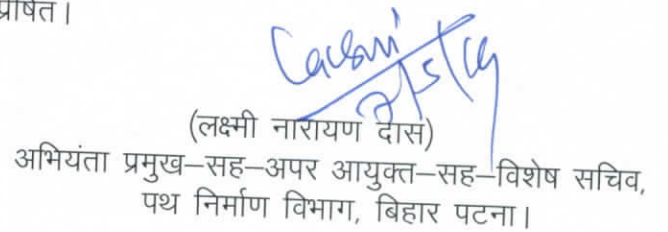 प्रेषित।
Laxmi
7/5/19
(लक्ष्मी नारायण दास)
अभियंता प्रमुख–सह–अपर आयुक्त–सह–विशेष सचिव,
पथ निर्माण विभाग, बिहार पटना।